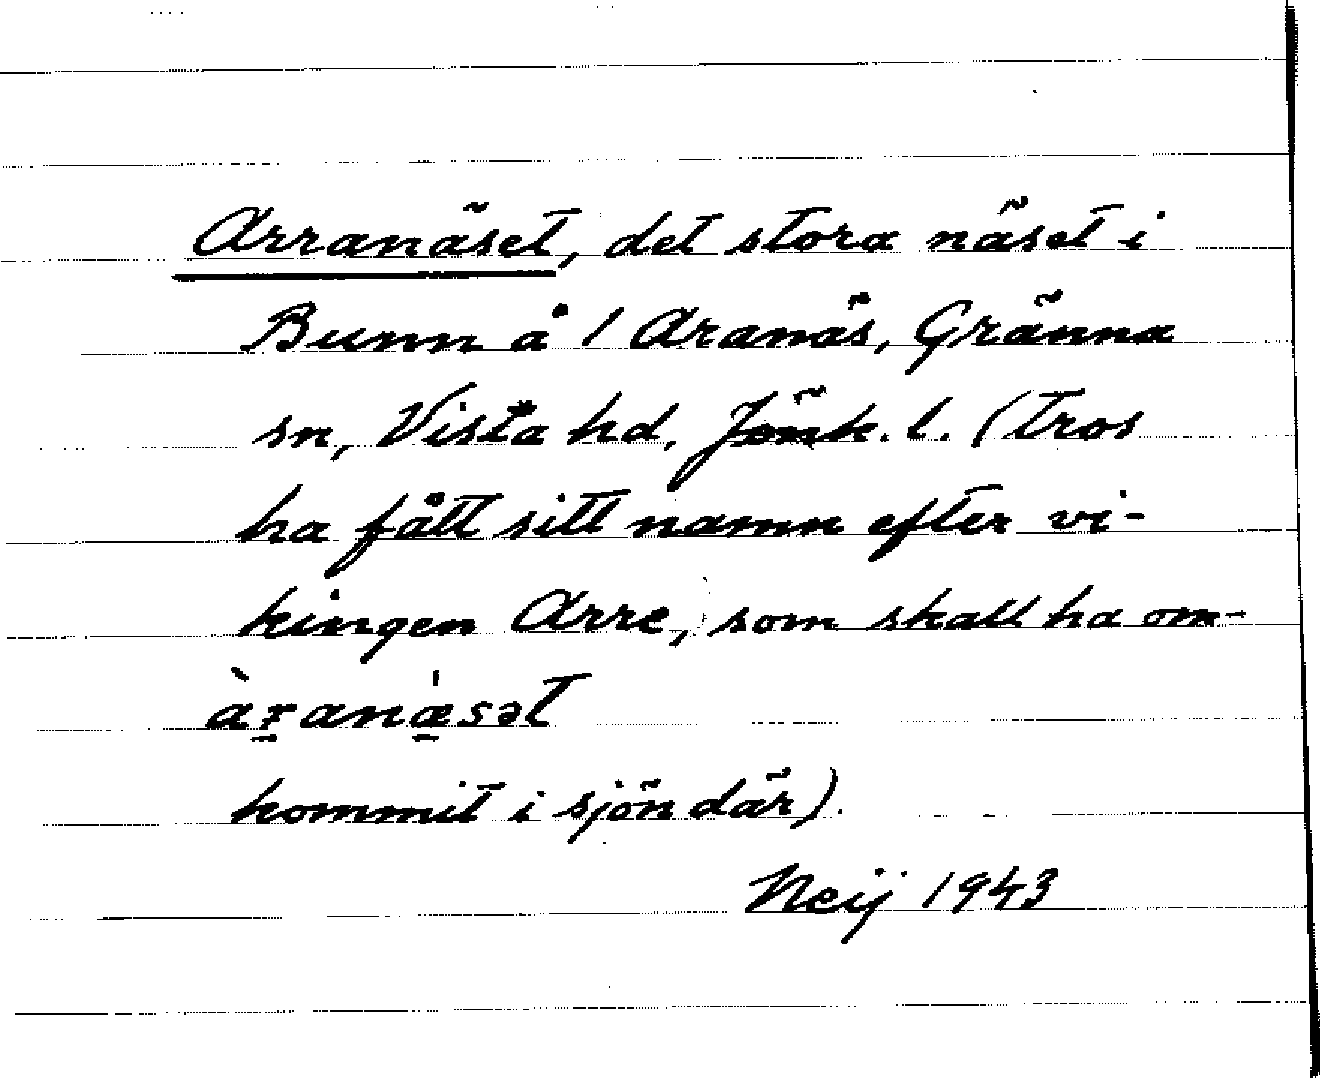 Arranäset, det stora näset i
Bunn å 1 Aranäs, Gränna
sn, Vista hd, Jönk. l. (tros
ha fått sitt namn efter vi-
kingen Arre, som skall ha om-
àr̲anæ̲̍sət
kommit i sjön där).
Neij 1943